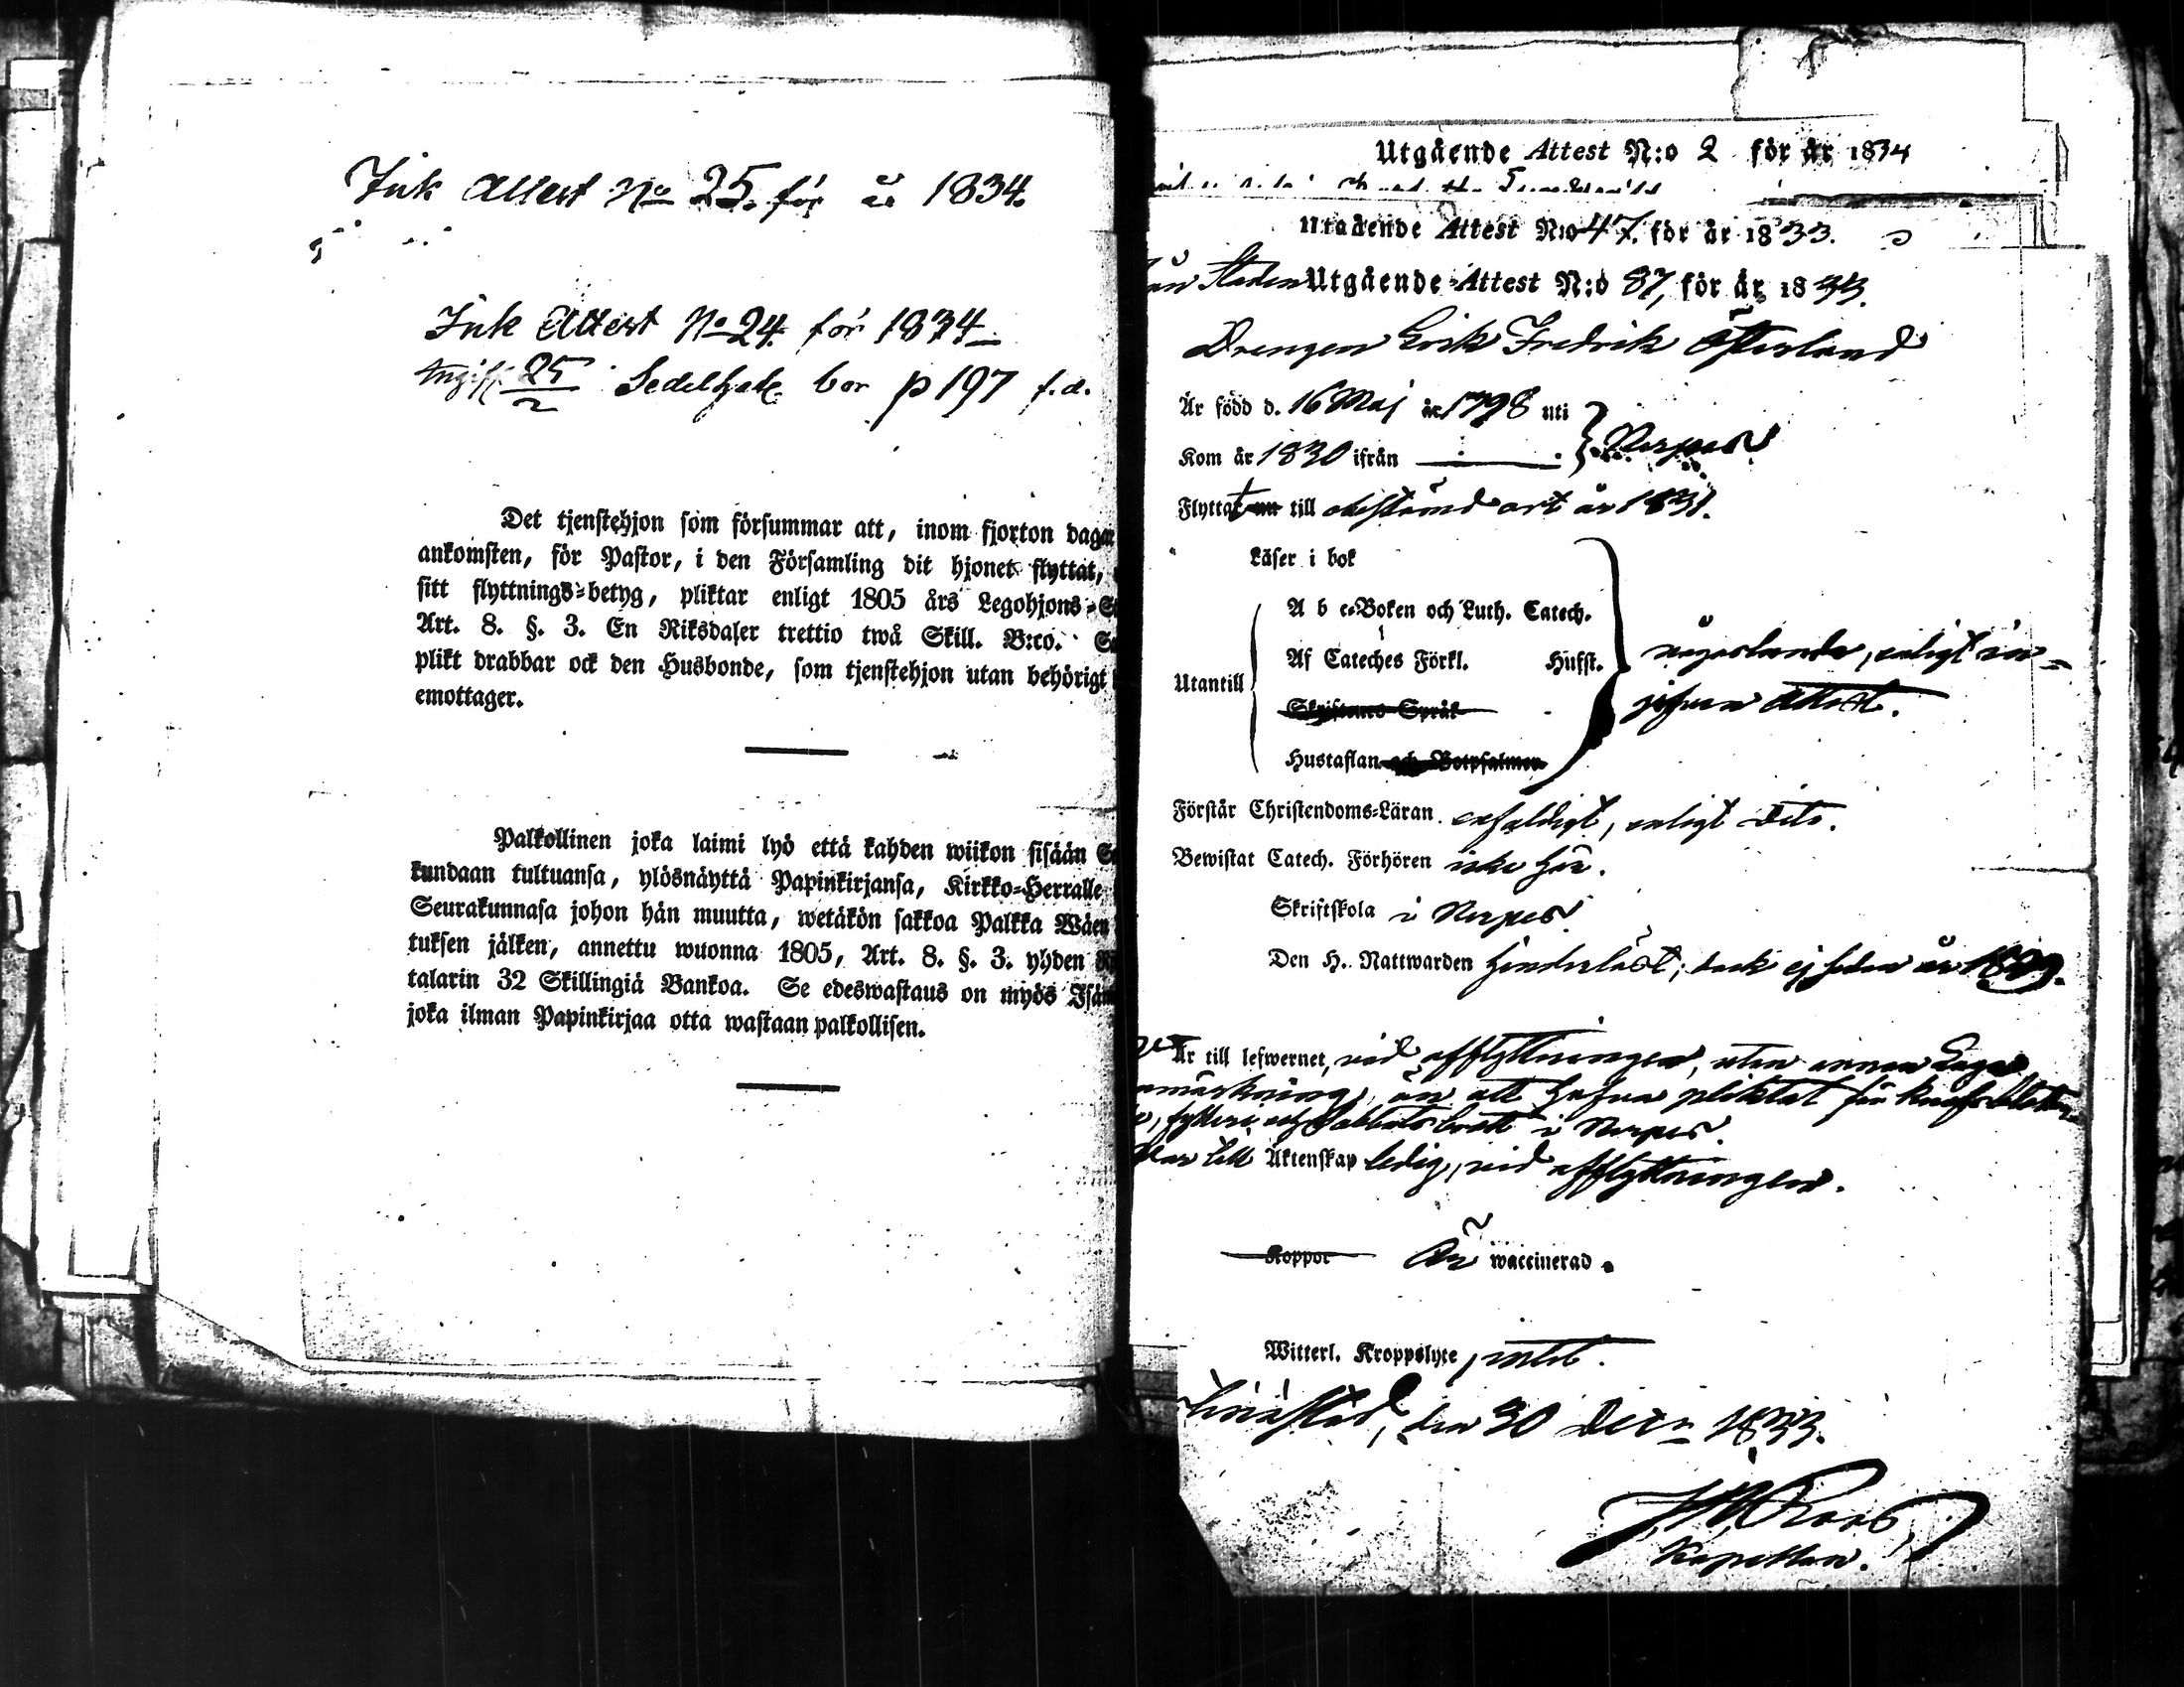 Ink Attest No 25. för år 1834.
Ink Attest No 24. för 1834
25/2 Sedelhaf. bor p 197 f.d.
Det tjenstehjon som försummar att, inom fjorton dagar
ankomsten, för Pastor, i den Församling dit hjonet flyttat,
sitt flyttnings-betyg, pliktar enligt 1805 års Legohjons-S
Art. 8. §. 3. En Riksdaler trettio twå Skill. B:co.
plikt drabbar ock den Husbonde, som tjenstehjon utan behörigt
emottager.
Palkollinen joka laimi lyö että kahden wiikon sisään S
kundaan tultuansa, ylösnäyttä Papinkirjansa, Kirkko-Herralle
Seurakunnasa johon hän muutta, wetäkön sakkoa Palkka Wäen
tuksen jälken, annettu wuonna 1805, Art. 8. §. 3. yhden
talarin 32 Skillingiä Bankoa. Se edeswastaus on myös Isän
joka ilman Papinkirjaa otta wastaan palkollisen.
Utgående Attest N:o 2 för år 1834
Utgående Attest N:o 47. för år 1833.
Staden Utgående Attest N:o 87, för år 1833.
Drengen Erik Fredrik Österland
Är född d. 16 Maj år 1798 uti
Kom år 1830 ifrån } Nerpes
Flyttat till obestämd ort år 1831.
Läser i bok
A b c-Boken och Luth. Catech.
Af Cateches Förkl. Hufst. någorlunda, enligt in-
Utantill
Skriftenes Språk gifven Attest.
Hustaflan och Botpsalmer
Förstår Christendoms-Läran enfaldigt, enligt dito.
Bewistat Catech. Förhören icke här.
Skriftskola i Nerpes.
Den H. Nattwarden hinderlöst; dock ej sedan år 1829.
Är till lefwernet, vid afflyttningen, utan annan laga
anmärkning, än att hafva pliktat för
fylleri och Sabbatsbrott i Nerpes.
Var till Äktenskap ledig, vid afflyttningen.
Koppor Är waccinerad.
Witterl. Kroppslyte, intet.
Christinæstad, den 30 Decr 1833.
Kapellan.